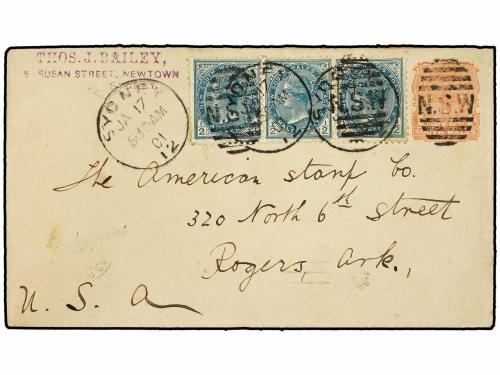 THOS. J. BAILEY,
SUSAN STREET, NEWTOWN
SYDNEY
JA 17
01
12
N.S.W
N.S.W
N.S.W
The American Stamp Co.
320 North 6th Street
Rogers, Ark.,
U. S. A